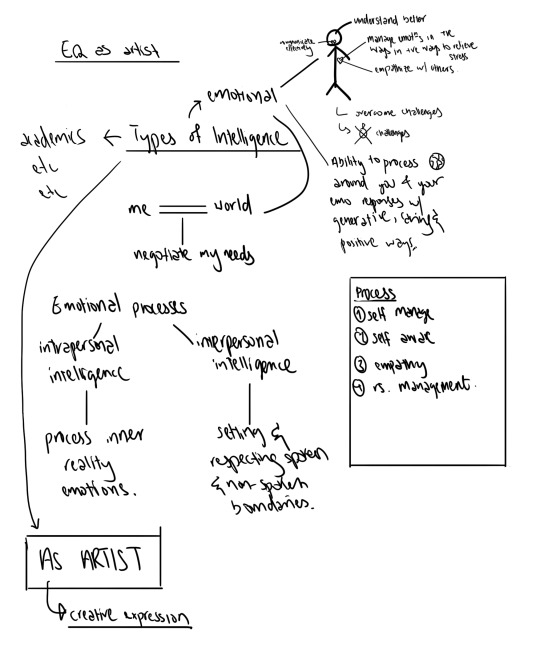 EQ as artist
understand better
communicate
effectively
manage emot°s in +ve
ways in +ve ways to relieve
stress
empathize w/ others.
emotional
overcome challenges
challenges
academics
etc
etc
Types of Intelligence
Ability to process
around you & your
emo reponses w/
generative, strong &
positive ways.
me world
negotiate my needs
Emotional processes
intrapersonal
intelligence
interpersonal
intelligence
process inner
reality
emotions.
setting &
respecting spoken
& non-spoken
boundaries.
Process
① self manage
② self aware
③ empathy
④ rs. management.
AS ARTIST
creative expression